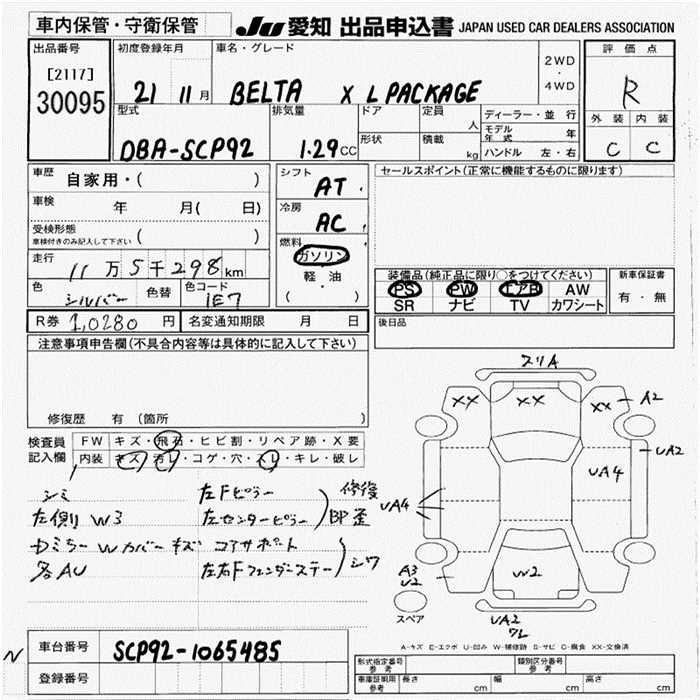 車内保管・守衛保管
JU 愛知 出品申込書 JAPAN USED CAR DEALERS ASSOCIATION
出品番号
[2117]
30095
初度登録年月
21 11月
車名・グレード
BELTA X L PACKAGE
2WD
・
4WD
評価点
R
外装 内装
C C
型式
DBA-SCP92
排気量
1.29CC
ドア
形状
定員
人
積載
kg
ディーラー・並行
モデル年式 年
ハンドル 左・右
車歴
自家用・( )
車検
年 月( 日)
受検形態
車検付きのみ記入して下さい ( )
走行
11万5千298km
色
シルバー
色替
色コード
1E7
シフト
AT
冷房
AC
燃料
ガソリン
・
軽・油
( ・ )
R券 10280 円
名変通知期限 月 日
セールスポイント(正常に機能するものに限ります)
装備品(純正品に限り○をつけてください)
PS PW エアB AW
SR ナビ TV カワシート
新車保証書
有・無
後日品
注意事項申告欄(不具合内容等は具体的に記入して下さい)
修復歴 有(箇所 )
検査員記入欄
FW キズ・飛石・ヒビ割・リペア跡・X要
内装 キズ・汚レ・コゲ・穴・スレ・キレ・破レ
シミ 左Fピラー 修復
左側リW3 左センターピラー 即歪
Wカバーキズ コアサポート
各AU 左右Fフェンダーステー シワ
スリA
XX XX XX A2
UA2
UA4
UA4
A3
U2
W2
スペア
UA2
ワレ
A-キズ E-エクボ U-凹み W-補修跡 S-サビ C-腐食 XX-交換済
N
車台番号 SCP92-1065485
登録番号
形式指定番号 参考
類別区分番号 参考
車庫証明用 参考
長さ cm 幅 cm 高さ cm